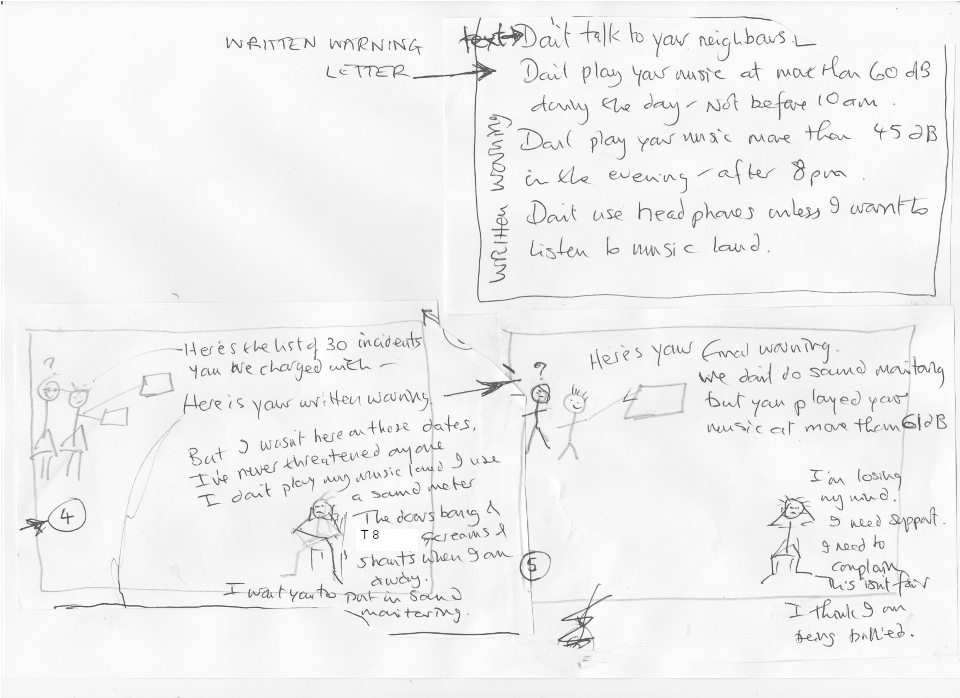 WRITTEN WARNING
LETTER
text → Don't talk to your neighbours.
Don't play your music at more than 60 dB
during the day - Not before 10 am.
Don't play your music more than 45 dB
in the evening - after 8pm.
Don't use headphones unless I want to
listen to music loud.
WRITTEN WARNING
?
Here's the list of 30 incidents
you are charged with -
Here is your written warning.
But I wasn't here on those dates,
I've never threatened anyone
I don't play my music loud I use
a sound meter
The doors bang &
T8 screams &
shouts when I am
away.
I want you to put in sound
monitoring.
4
?
Here's your final warning.
We don't do sound monitoring
but you played your
music at more than 61dB
I'm losing
my mind.
I need support.
I need to
complain
this isn't fair
I think I am
being bullied.
5